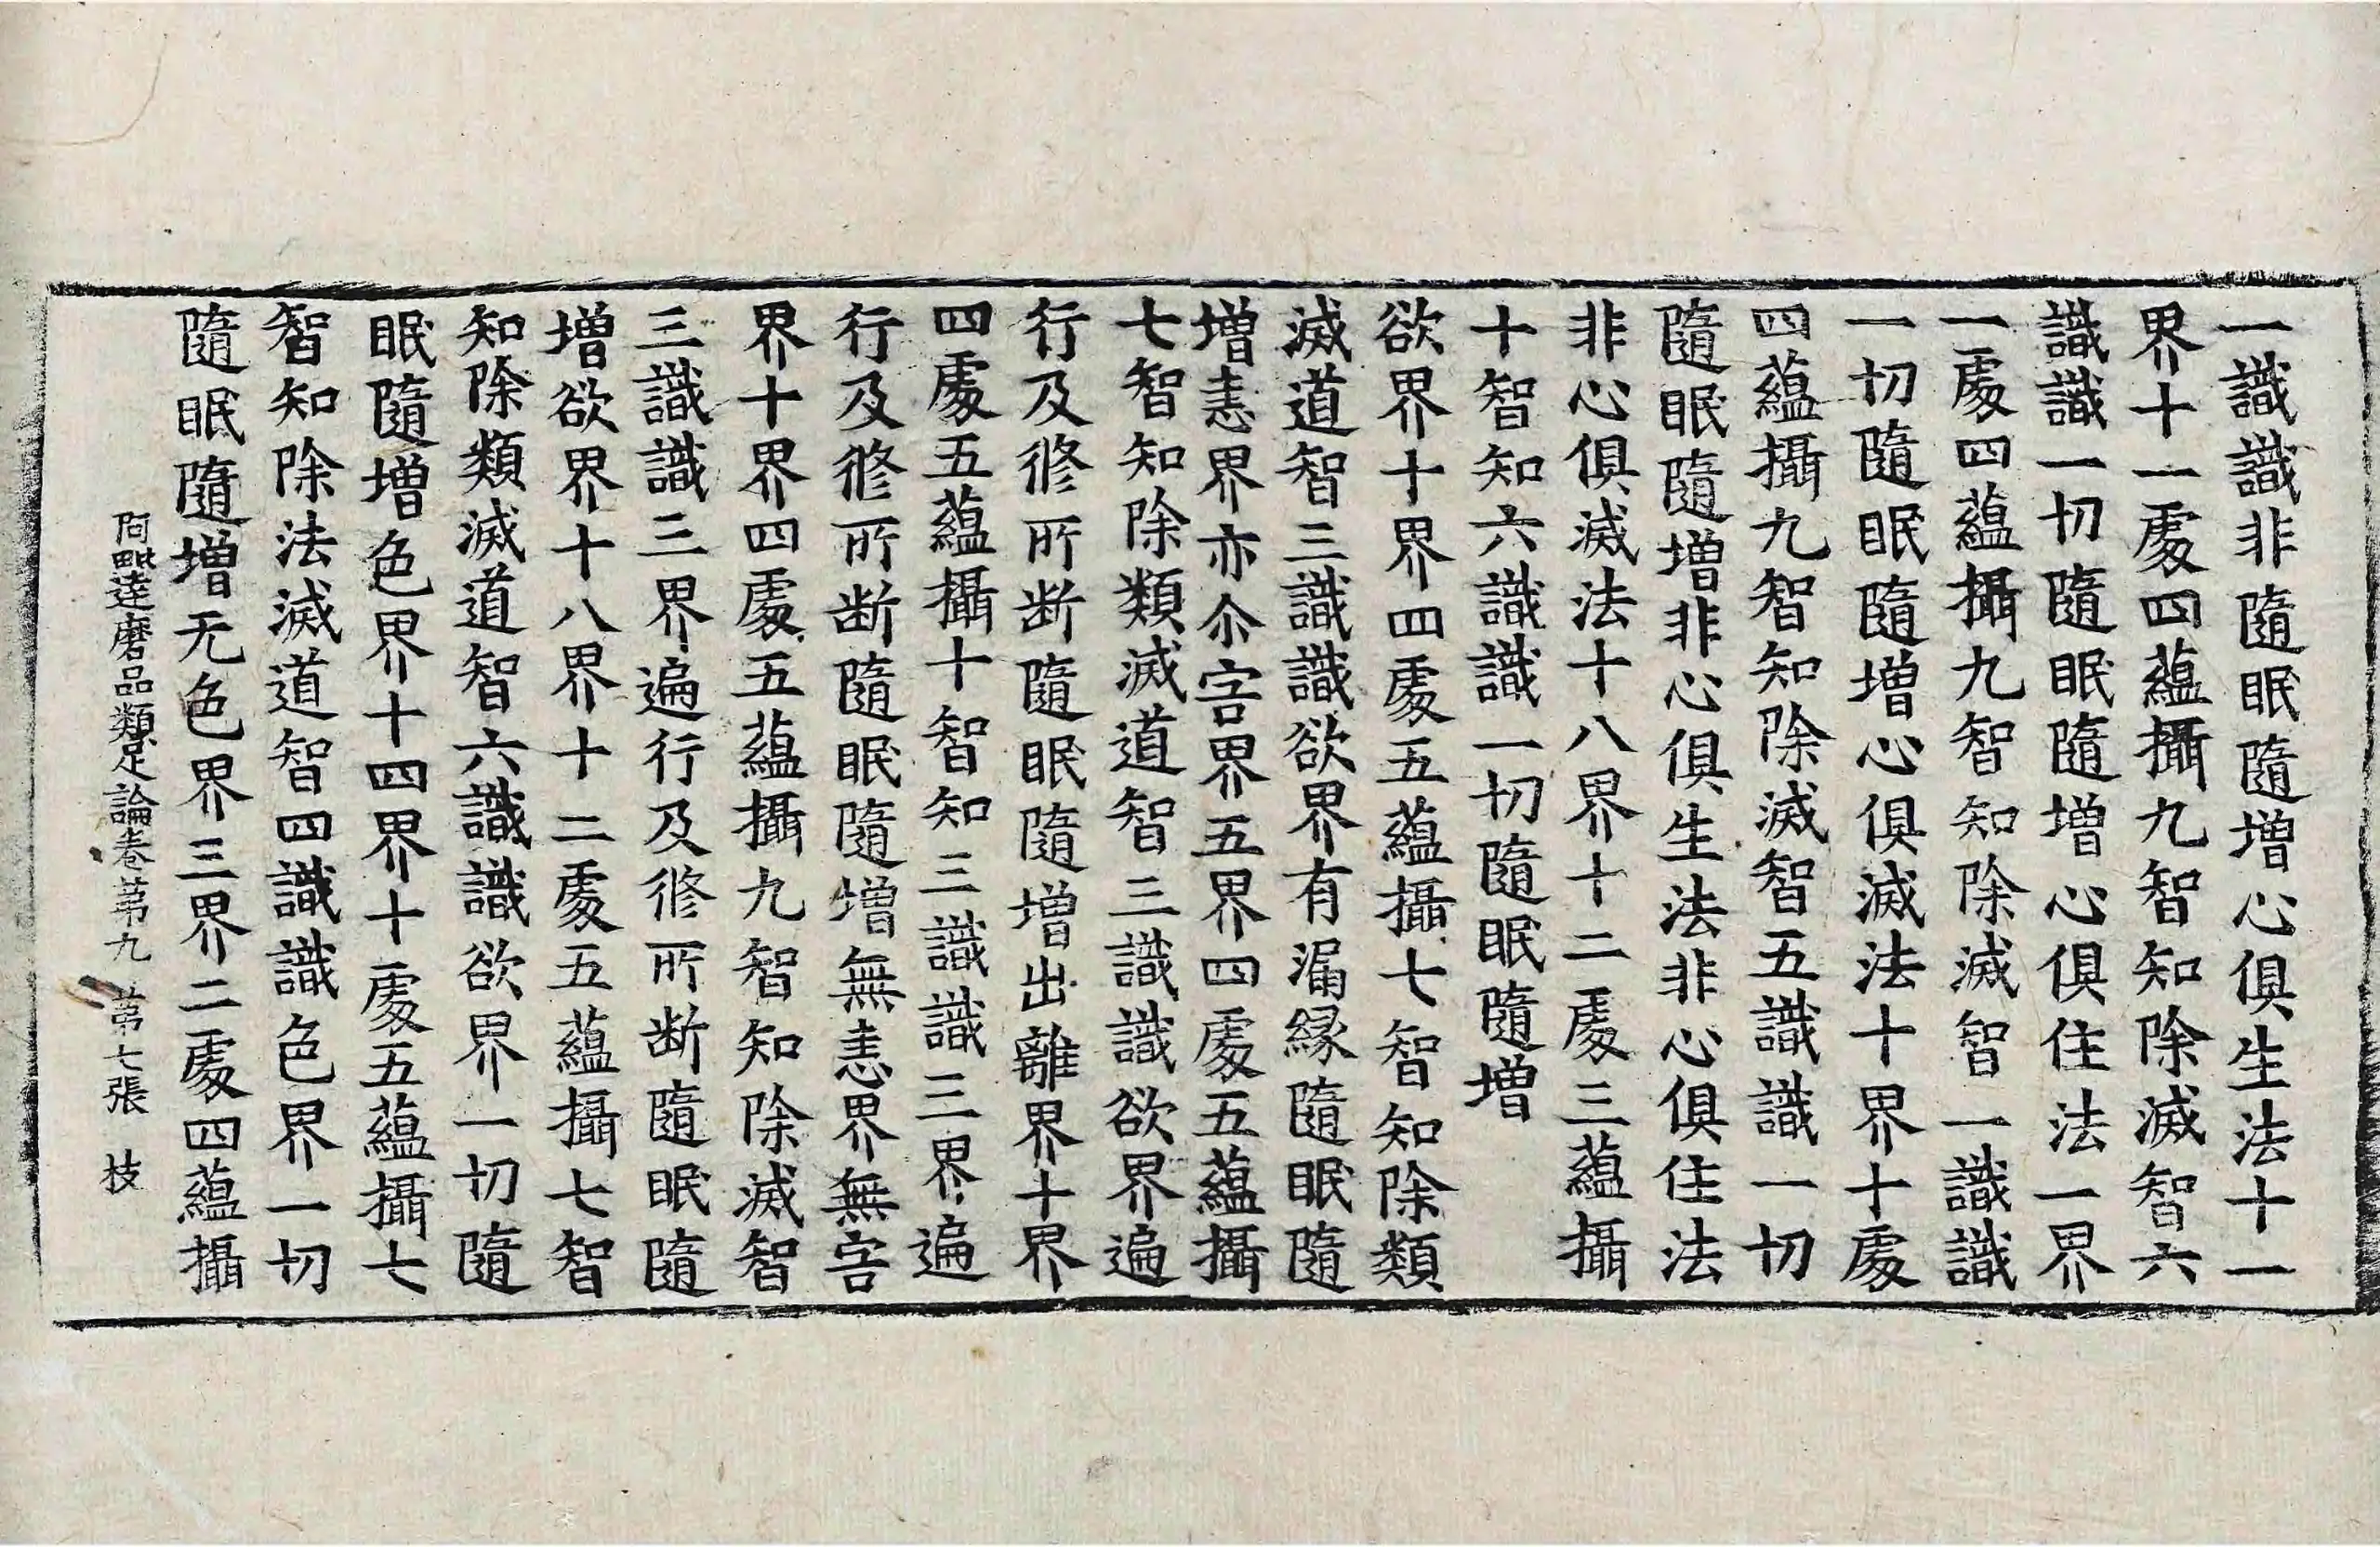 一識識非隨眠隨增心俱生法十一
界十一處四蘊攝九智知除滅智六
識識一切隨眠隨增心俱住法一界
一處四蘊攝九智知除滅智一識識
一切隨眠隨增心俱滅法十界十處
四蘊攝九智知除滅智五識識一切
隨眠隨增非心俱生法非心俱住法
非心俱滅法十八界十二處三蘊攝
十智知六識識一切隨眠隨增
欲界十界四處五蘊攝七智知除類
滅道智三識識欲界有漏縁隨眠隨
增恚界亦尒害界五界四處五蘊攝
七智知除類滅道智三識識欲界遍
行及修所断隨眠隨增出離界十界
四處五蘊攝十智知三識識三界遍
行及修所断隨眠隨增無恚界無害
界十界四處五蘊攝九智知除滅智
三識識三界遍行及修所断隨眠隨
增欲界十八界十二處五蘊攝七智
知除類滅道智六識識欲界一切隨
眠隨增色界十四界十處五蘊攝七
智知除法滅道智四識識色界一切
隨眠隨增无色界三界二處四蘊攝
阿毗達磨品類足論卷苐九 苐七張 枝